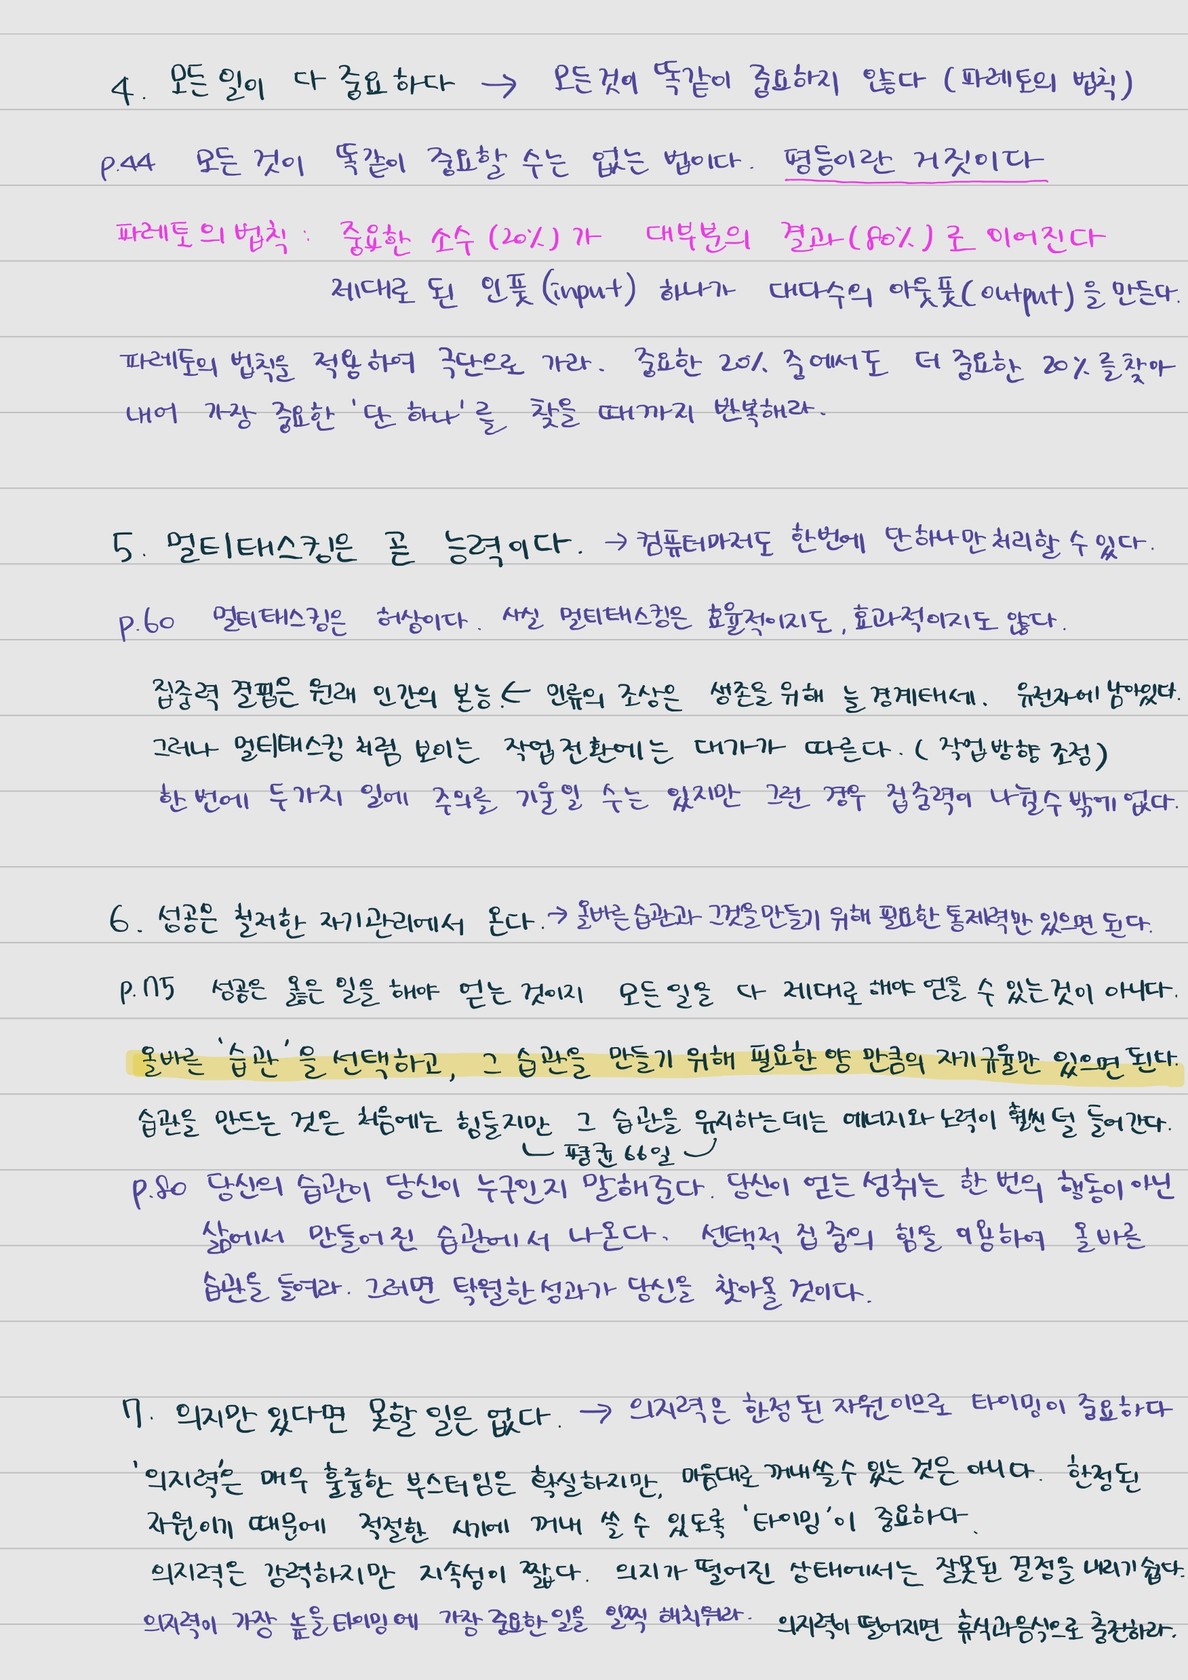 4. 모든 일이 다 중요하다 → 모든것이 똑같이 중요하지 않다 (파레토의 법칙)
p.44 모든 것이 똑같이 중요할 수는 없는 법이다. 평등이란 거짓이다
파레토의 법칙 : 중요한 소수 (20%)가 대부분의 결과(80%)로 이어진다
제대로 된 인풋(input) 하나가 대다수의 아웃풋(output)을 만든다.
파레토의 법칙을 적용하여 극단으로 가라. 중요한 20% 중에서도 더 중요한 20%를 찾아
내어 가장 중요한 '단 하나'를 찾을 때까지 반복해라.
5. 멀티태스킹은 곧 능력이다. → 컴퓨터마저도 한번에 단하나만 처리할 수 있다.
p.60 멀티태스킹은 허상이다. 사실 멀티태스킹은 효율적이지도, 효과적이지도 않다.
집중력 결핍은 원래 인간의 본능. ← 인류의 조상은 생존을 위해 늘 경계태세. 유전자에 남아있다.
그러나 멀티태스킹 처럼 보이는 작업 전환에는 대가가 따른다. (작업방향 조정)
한 번에 두가지 일에 주의를 기울일 수는 있지만 그런 경우 집중력이 나뉠수 밖에 없다.
6. 성공은 철저한 자기관리에서 온다. → 올바른 습관과 그것을 만들기 위해 필요한 통제력만 있으면 된다.
p.75 성공은 옳은 일을 해야 얻는 것이지 모든 일을 다 제대로 해야 얻을 수 있는것이 아니다.
올바른 '습관'을 선택하고, 그 습관을 만들기 위해 필요한 양 만큼의 자기규율만 있으면 된다.
습관을 만드는 것은 처음에는 힘들지만 그 습관을 유지하는데는 에너지와 노력이 훨씬 덜 들어간다.
평균 66일
p.80 당신의 습관이 당신이 누구인지 말해준다. 당신이 얻는 성취는 한 번의 행동이 아닌
삶에서 만들어진 습관에서 나온다. 선택적 집중의 힘을 이용하여 올바른
습관을 들여라. 그러면 탁월한 성과가 당신을 찾아올 것이다.
7. 의지만 있다면 못할 일은 없다. → 의지력은 한정된 자원이므로 타이밍이 중요하다
'의지력'은 매우 훌륭한 부스터임은 확실하지만, 마음대로 꺼내쓸 수 있는 것은 아니다. 한정된
자원이기 때문에 적절한 시기에 꺼내 쓸 수 있도록 '타이밍'이 중요하다.
의지력은 강력하지만 지속성이 짧다. 의지가 떨어진 상태에서는 잘못된 결정을 내리기 쉽다.
의지력이 가장 높을 타이밍에 가장 중요한 일을 일찍 해치워라. 의지력이 떨어지면 휴식과 음식으로 충전하라.